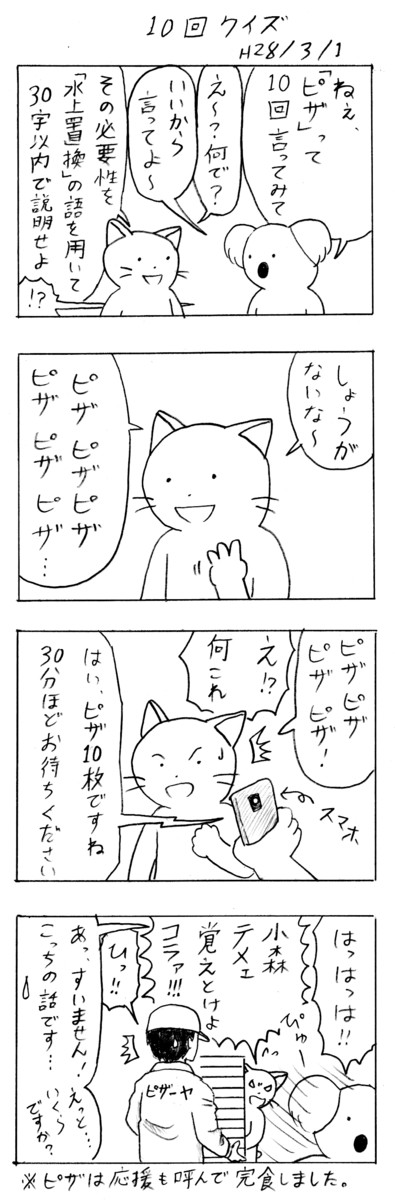 10回クイズ
H28/3/1
ねぇ、
「ピザ」って
10回言ってみて
え〜?何で?
いいから
言ってよ〜
その必要性を
「水上置換」の語を用いて
30字以内で説明せよ
!?
しょうが
ないな〜
ピザ ピザ ピザ
ピザ ピザ ピザ…
ピザ ピザ
ピザ ピザ!
え!?
何これ
スマホ
はい、ピザ10枚ですね
30分ほどお待ちください
はっはっは!!
ぴゅー
小森
テメェ
覚えとけよ
コラァ!!!
ひっ!!
あっ、すいません!
こっちの話です…
えっと…
いくら
ですか?
ピザーヤ
※ピザは応援も呼んで完食しました。